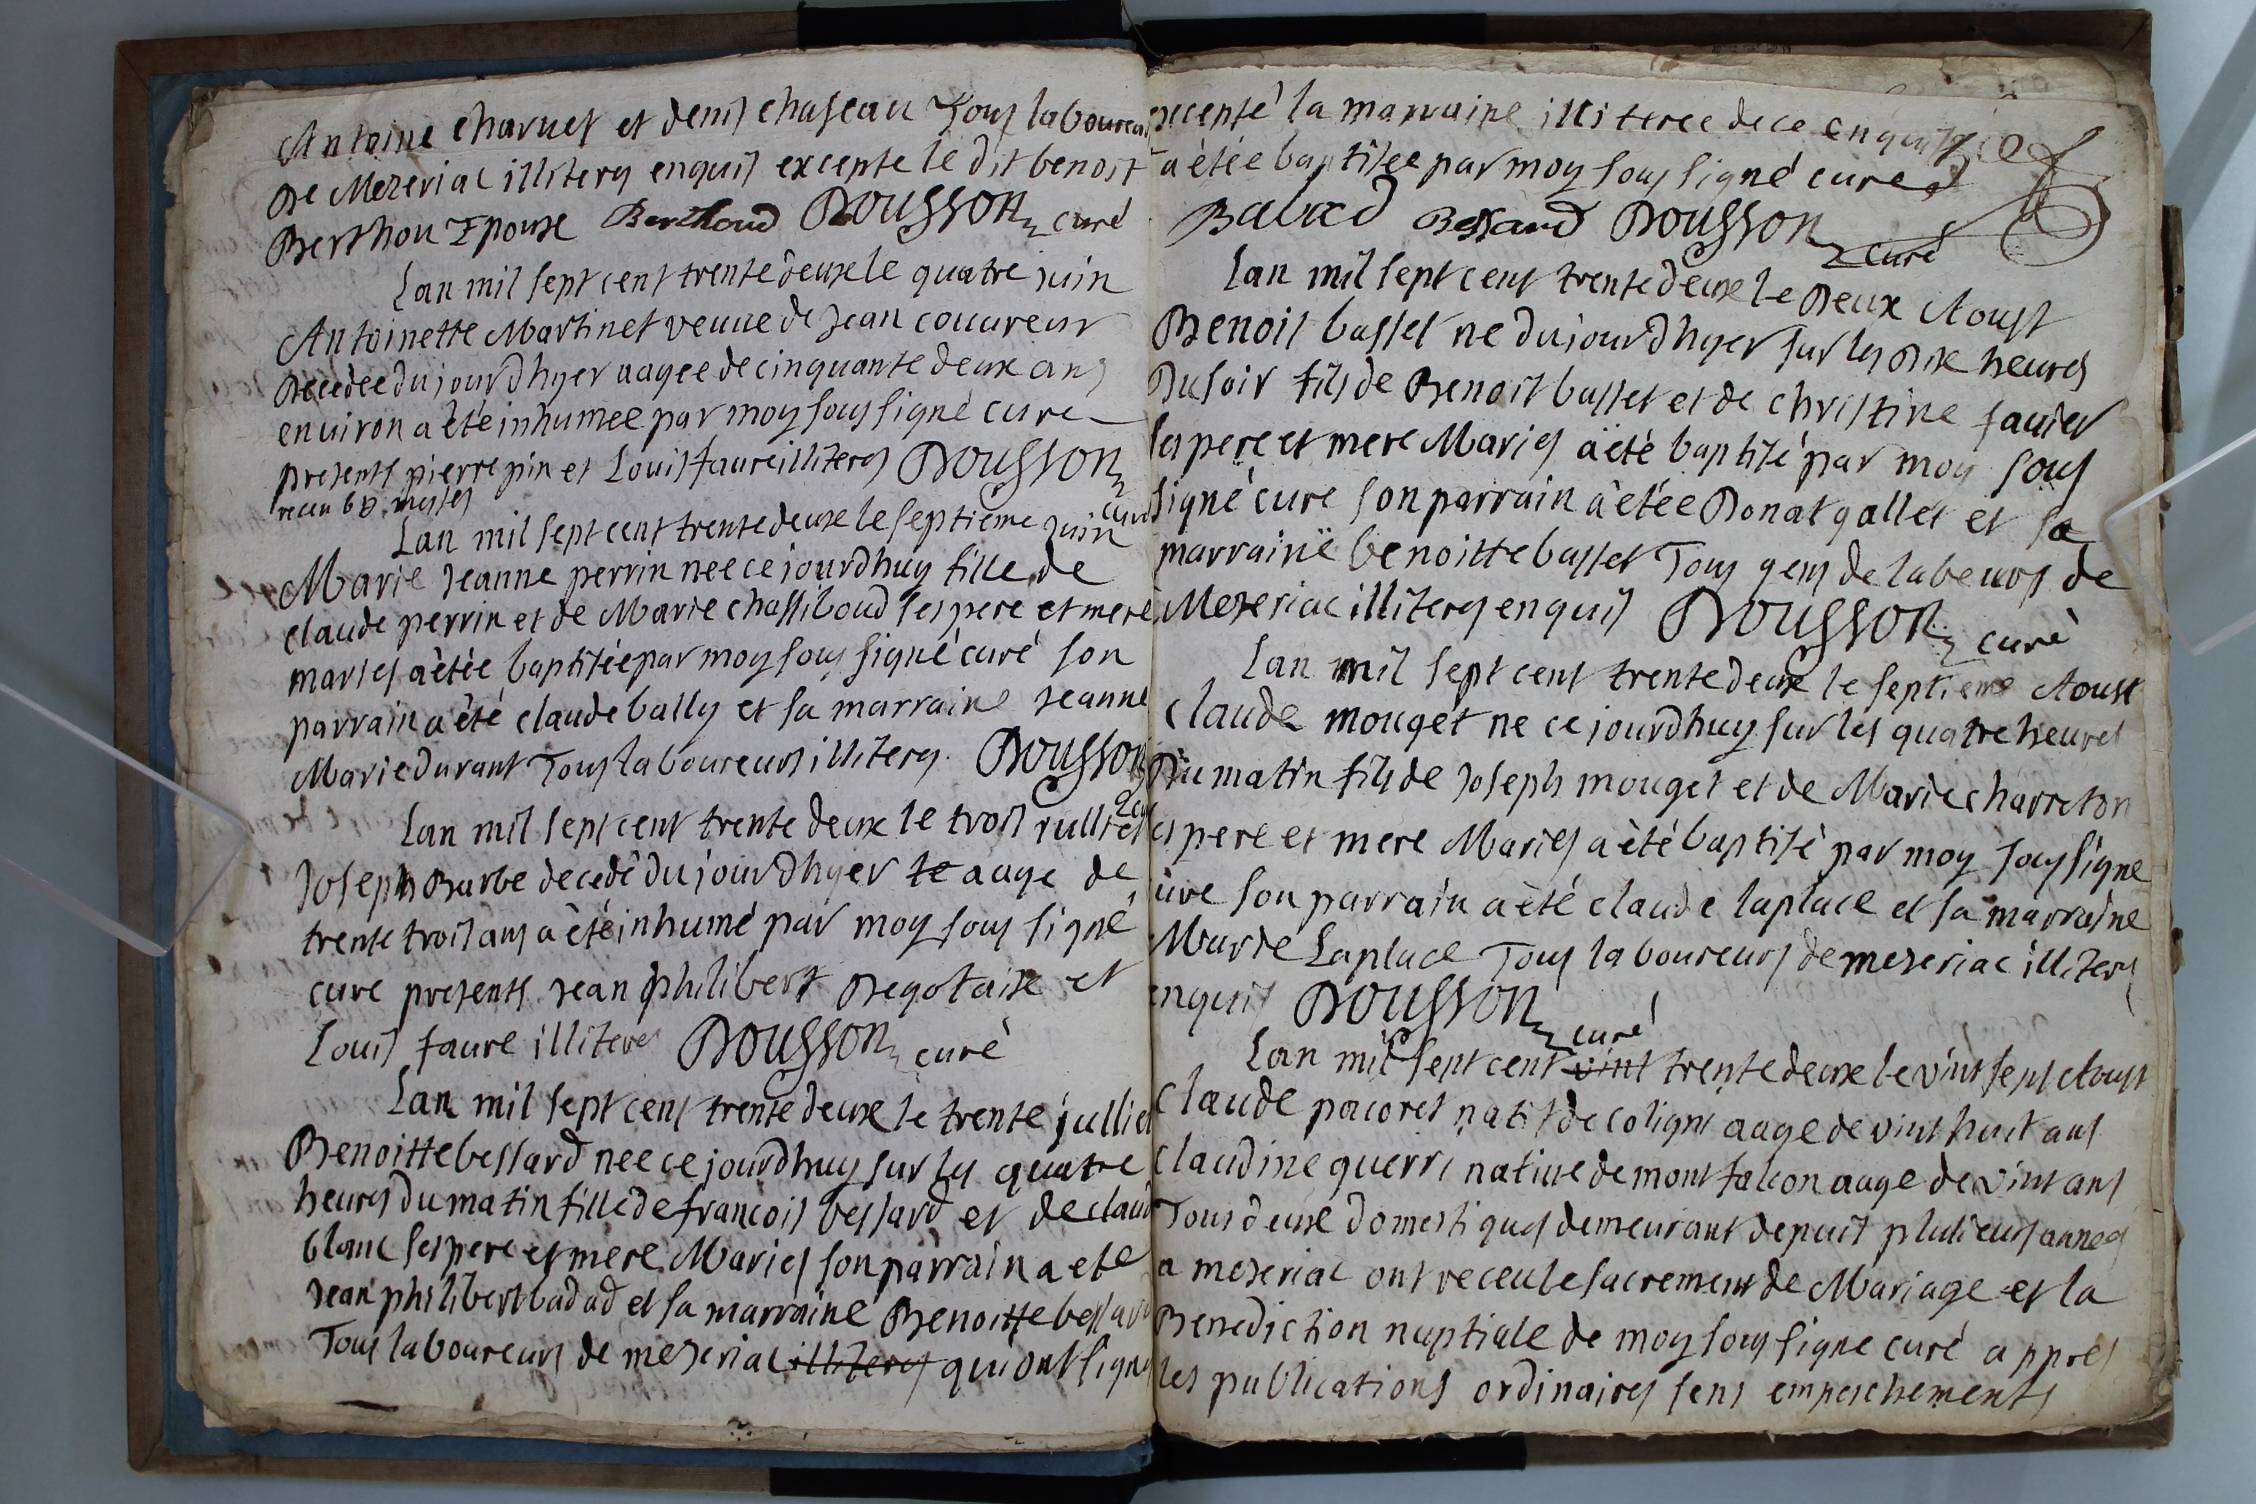 Antoine charuet et denis chaseau Tous laboureurs
De Mezeriac illiterés enquis excepte le dit benoit
Berthou Epoux Berthoud DOUSSON curé
Lan mil sept cent trente deux le quatre juin
Antoinette Martinet veuue de Jean couureur
Decedee du jour dhyer aagee de cinquante deux ans
enuiron a èté inhumee par moy sous signé cure
presents pierre pin et Louis faure illiterés DOUSSON
curé
Lan mil sept cent trente deux le septieme juin
Marie Jeanne perrin nee ce jourdhuy fille de
claude perrin et de Marie chassiboud ses pere et mere
mariés a ètée baptisée par moy sous signé curé son
parrain a èté claude bally et sa marraine Jeanne
Marie durant Tous laboureurs illiterés. DOUSSON
Lan mil sept cent trente deux le trois jullret
Joseph Barbe decedé du jour dhyer le aage de
trente trois ans a èté inhumé par moy sous signé
cure presents Jean philibert Degotaise et
Louis faure illiteres DOUSSON curè
Lan mil sept cent trente deux le trente julliet
Benoitte bessard nee ce jourdhuy sur les quatre
heures du matin fille de francois bessard et de claud
blanc ses pere et mere Mariés son parrain a ete
Jean philibert badad et sa marraine Benoitte bessard
Tous laboureurs de mezeriac illiterés qui ont signé
excepté la marraine illiteree de ce enquise
a ètée baptisee par moy sous signé cure
Badad Bessard DOUSSON
curé
Lan mil sept cent trente deux le Deux Aoust
Benoit basset ne du jour dhyer sur les Dix heures
Du soir fils de Benoit basset et de christine sauier
ses pere et mere Mariés a èté baptisé par moy sous
signé cure son parrain a ètée Donat gallet et sa
marraine benoitte basset Tous gens de labeurs de
Mezeriac illiterés enquis DOUSSON curè
Lan mil sept cent trente deux le septieme Aoust
claude mouget ne ce jourdhuy sur les quatre heures
Du matin fils de Joseph mouget et de Marie charreton
es pere et mere Mariés a èté baptisè par moy sous signe
cure son parrain a èté claude laplace et sa marraine
Marie Laplace Tous laboureurs de mezeriac illiterés
enquis DOUSSON curé
Lan mil sept cent vint trente deux le vint sept Aoust
Claude pacoret natif de coligni aage de vint huit ans
claudine querri natiue de mont falcon aage de vint ans
Tous deux domestiques demeurant depuit plusieurs annes
a mezeriac ont receu le sacrement de Mariage et la
Benediction nuptiale de moy sous signe curé appres
les publications ordinaires sens empeschements